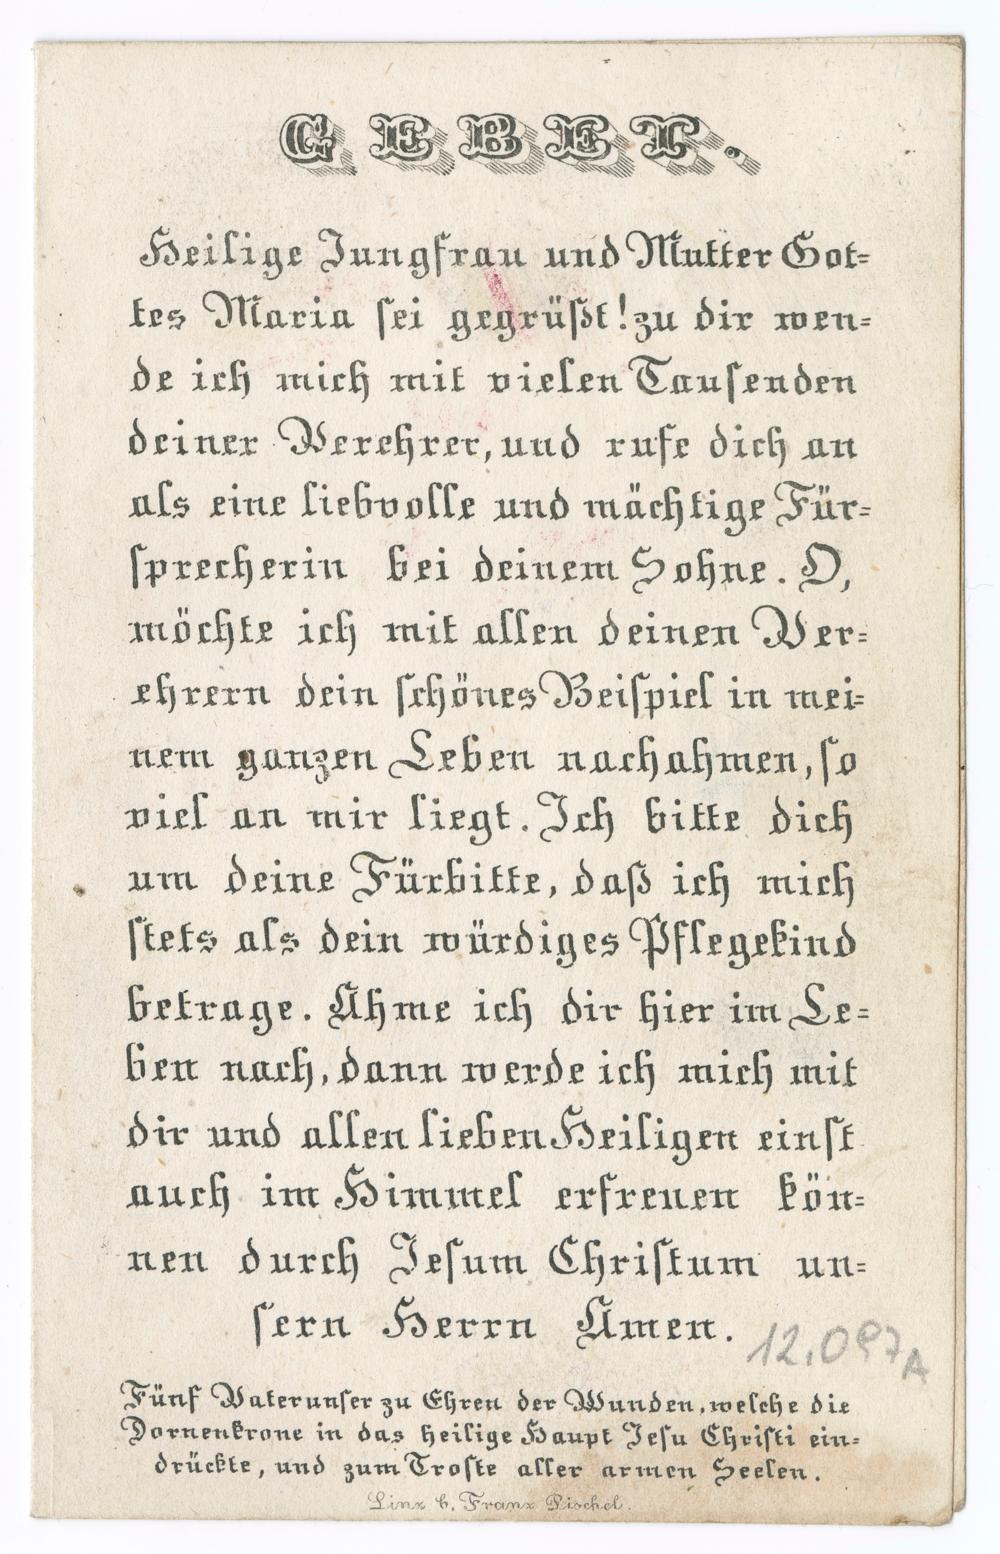 GEBET.
Heilige Jungfrau und Mutter Got=
tes Maria sei gegrüßt! zu dir wen=
de ich mich mit vielen Tausenden
deiner Verehrer, und rufe dich an
als eine liebvolle und mächtige Für=
sprecherin bei deinem Sohne. O,
möchte ich mit allen deinen Ver=
ehrern dein schönes Beispiel in mei=
nem ganzen Leben nachahmen, so
viel an mir liegt. Ich bitte dich
um deine Fürbitte, daß ich mich
stets als dein würdiges Pflegekind
betrage. Ahme ich dir hier im Le=
ben nach, dann werde ich mich mit
dir und allen lieben Heiligen einst
auch im Himmel erfreuen kön=
nen durch Jesum Christum un=
sern Herrn Amen.
12.097A
Fünf Vaterunser zu Ehren der Wunden, welche die
Dornenkrone in das heilige Haupt Jesu Christi ein=
drückte, und zum Troste aller armen Seelen.
Linz b. Franz Pischel.